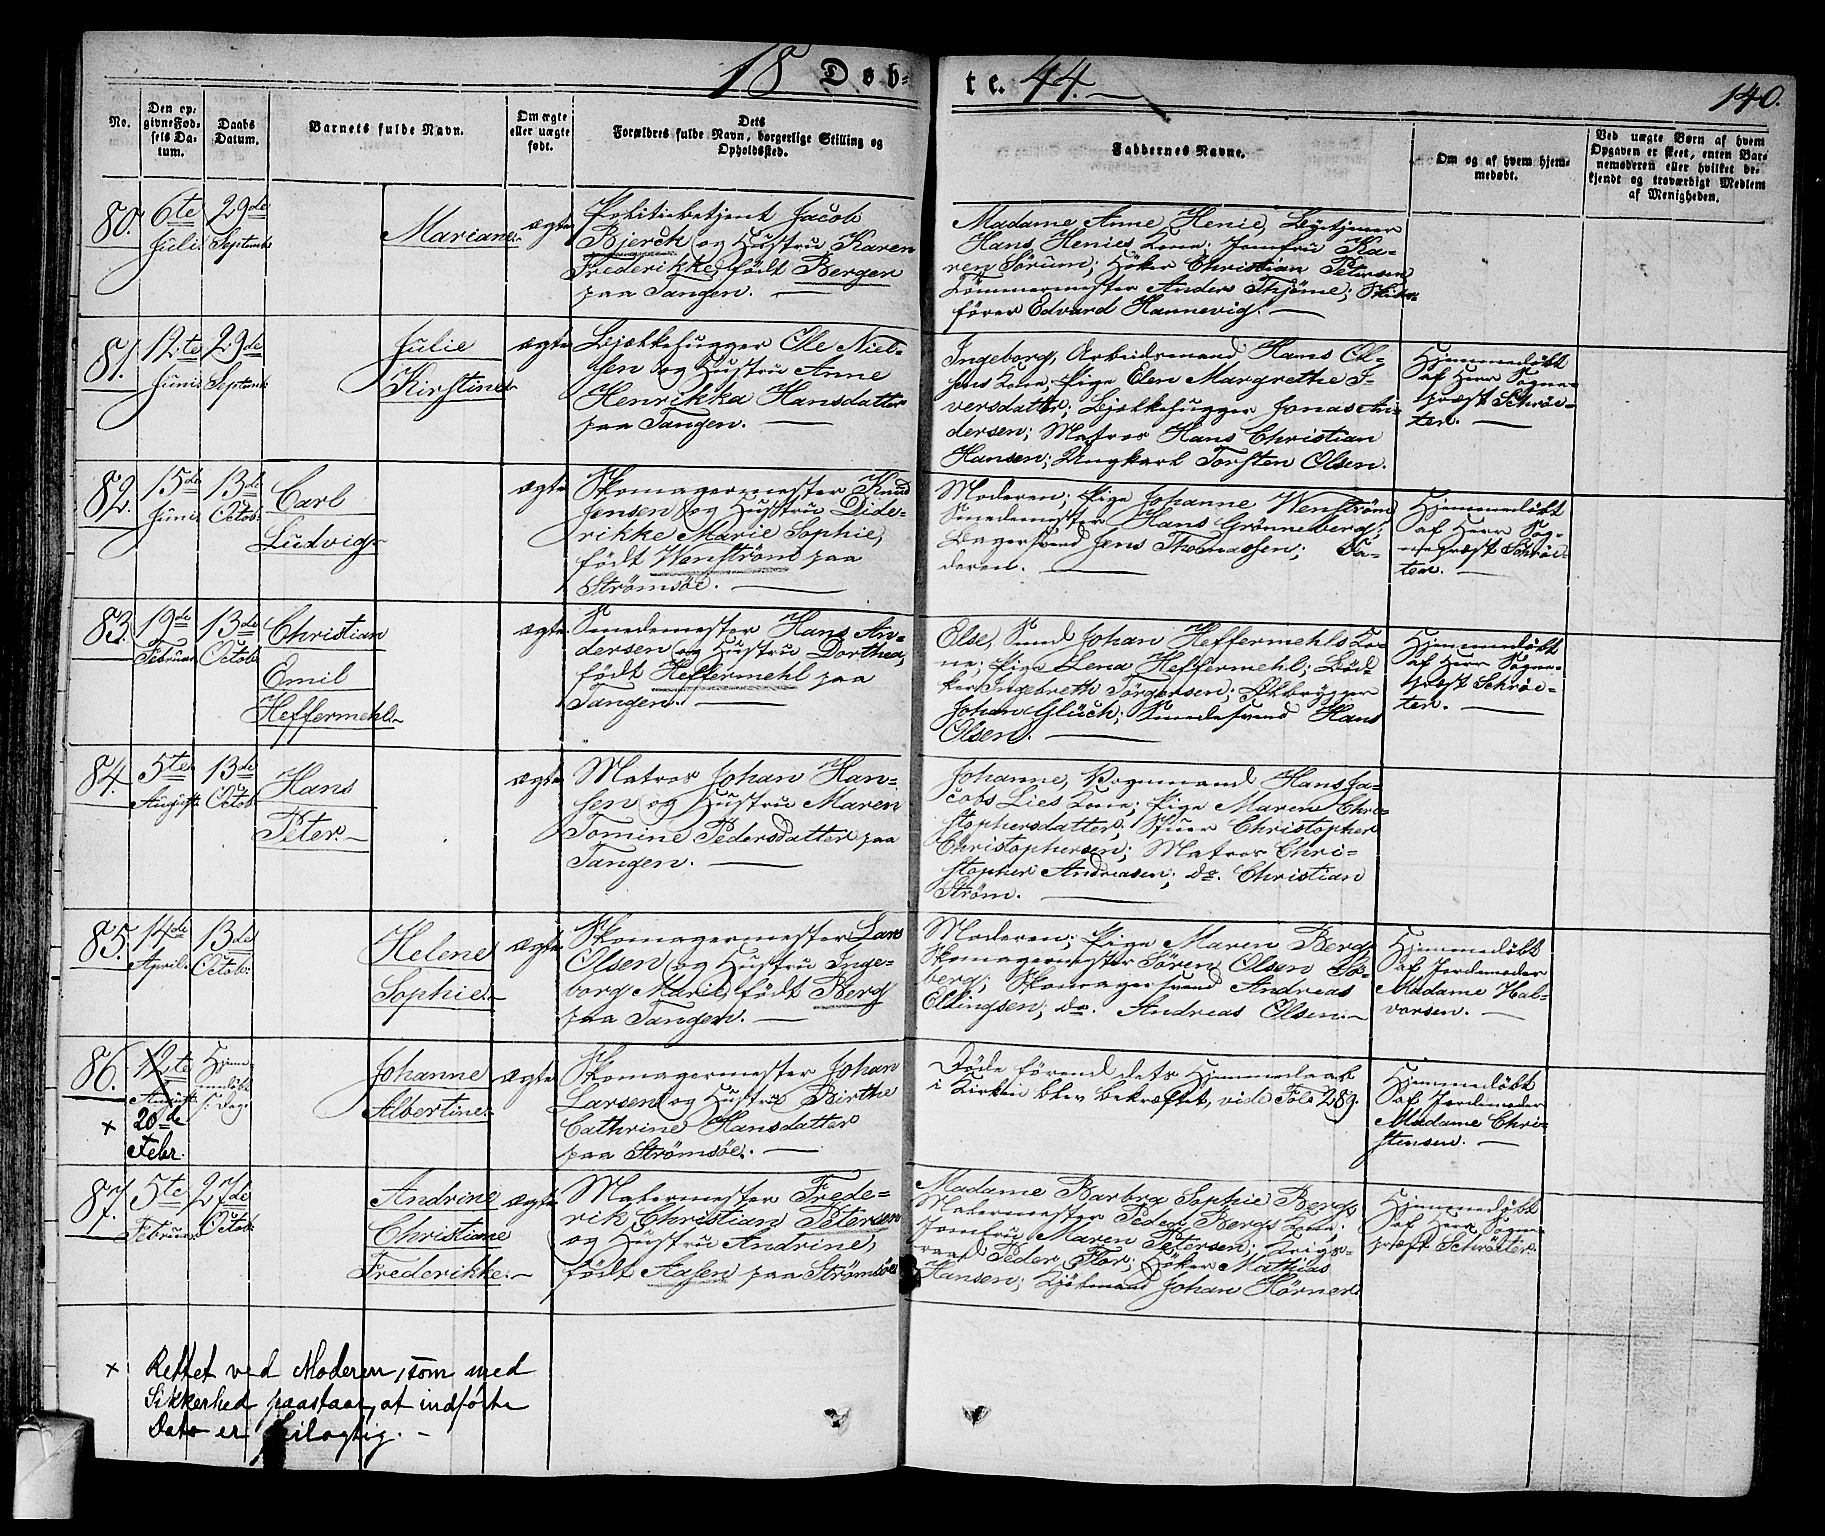 18 Døb-
te. 44.
140.
No.
Den op-
givne Fød-
sels Da-
tum.
Daabs
Datum.
Barnets fulde Navn.
Om ægte
eller uægte
født.
Dets
Forældres fulde Navn, borgerlige Stilling og
Opholdssted.
Faddernes Navne.
Om og af hvem hjem-
medøbt.
Ved uægte Børn af hvem
Opgaven er skeet, enten Bar-
nemoderen eller hvilket be-
kjendt og troværdigt Medlem
af Menigheden.
80.
6te
Juli
29de
Septemb
Mariane.
ægte
Politiebetjent Jacob
Bjerck og Hustru Karen
Frederikke, født Berger
paa Tangen.
Madame Anne Henie,
Hans Henies Kone; Jomfru Ka-
ren Sørum; Høker Christian Petersen
Tømmermester Anders Thjøme; Skibs-
fører Edvard Hannevig.
81.
12te
Junii
29de
Septemb
Julie
Kirstine.
ægte
Bjælkehugger Ole Niel-
sen og Hustru Anne
Henrikka Hansdatter
paa Tangen.
Ingeborg, Arbeidsmand Hans Ol-
sens Kone; Pige Elen Margrethe I-
versdatter; Bjælkehugger Jonas An-
dersen; Matros Hans Christian
Hansen; Ungkarl Torsten Olsen.
Hjemmedøbt
af Herr Sogne-
præst Schröe-
ter.
82.
15de
Junii
13de
Octob.
Carl
Ludvig.
ægte
Skomagermester Knud
Jensen og Hustru Dide-
rikke Marie Sophie,
født Wenstrøm paa
Strømsøe.
Moderen; Pige Johanne Wenstrøm
Smedemester Hans Grønneberg;
Bagersvend Jens Thomassen; Fa-
deren.
Hjemmedøbt
af Herr Sog-
nepræst Schröe-
ter.
83.
19de
Februar
13de
Octob.
Christian
Emil
Heffermehl.
ægte
Smedemester Hans An-
dersen og Hustru Dorthea,
født Heffermehl paa
Tangen.
Else, Smed Johan Heffermehls Ko-
ne; Pige Lena Heffermehl; Bød-
ker Ingebreth Törgersen; Ølbrygger
Johan Glück; Smedesvend Hans
Olsen.
Hjemmedøbt
af Herr Sogne-
præst Schröe-
ter.
84.
5te
August
13de
Octob.
Hans
Peter.
ægte
Matros Johan Han-
sen og Hustru Maren
Tomine Pedersdatter paa
Tangen.
Johanne, Vognmand Hans Ja-
cobs Lies Kone; Pige Maren Chri-
stophersdatter; Stuer Christopher
Christophersen; Matros Chri-
stopher Andreasen; do. Christian
Strøm.
85.
14de
April.
13de
Octob.
Helene
Sophie.
ægte
Skomagermester Lars
Olsen og Hustru Inge-
borg Marie, født Berg
paa Tangen.
Moderen; Pige Maren Berg,
Skomagermester Sören Olsen
berg; Skomagersvend Andreas
Ellingsen; do. Andreas Olsen.
Hjemmedøbt
af Jordemoder
Madame Hal-
vorsen.
86.
12te
August
x 20de
Febr.
Hjem-
medøbt
s: Dag.
Johanne
Albertine.
ægte
Skomagermester Johan
Larsen og Hustru Birthe
Cathrine Hansdatter
paa Strømsøe.
Døde førend dets Hjemmedaab
i Kirken blev bekræftet, vide Fol: 289.
Hjemmedøbt
af Jordemoder
Madame Chri-
stensen.
87.
5te
Februar
27de
Octob.
Andrine
Christiane
Frederikke.
ægte
Malermester Frede-
rik Christian Petersen
og Hustru Andrine,
født Aasen paa Strømsøe
Madame Barbra Sophie Berg,
Malermester Peder Bergs Kone;
Jomfru Maren Petersen; Krigs-
raad Peder Flor; Høker Mathias
Hansen; Kjøbmand Johan Hörner.
Hjemmedøbt
af Herr Sogne-
præst Schröeter.
x Rettet ved Moderen, som med
Sikkerhed paastaar, at indførte
Dato er feilagtig.